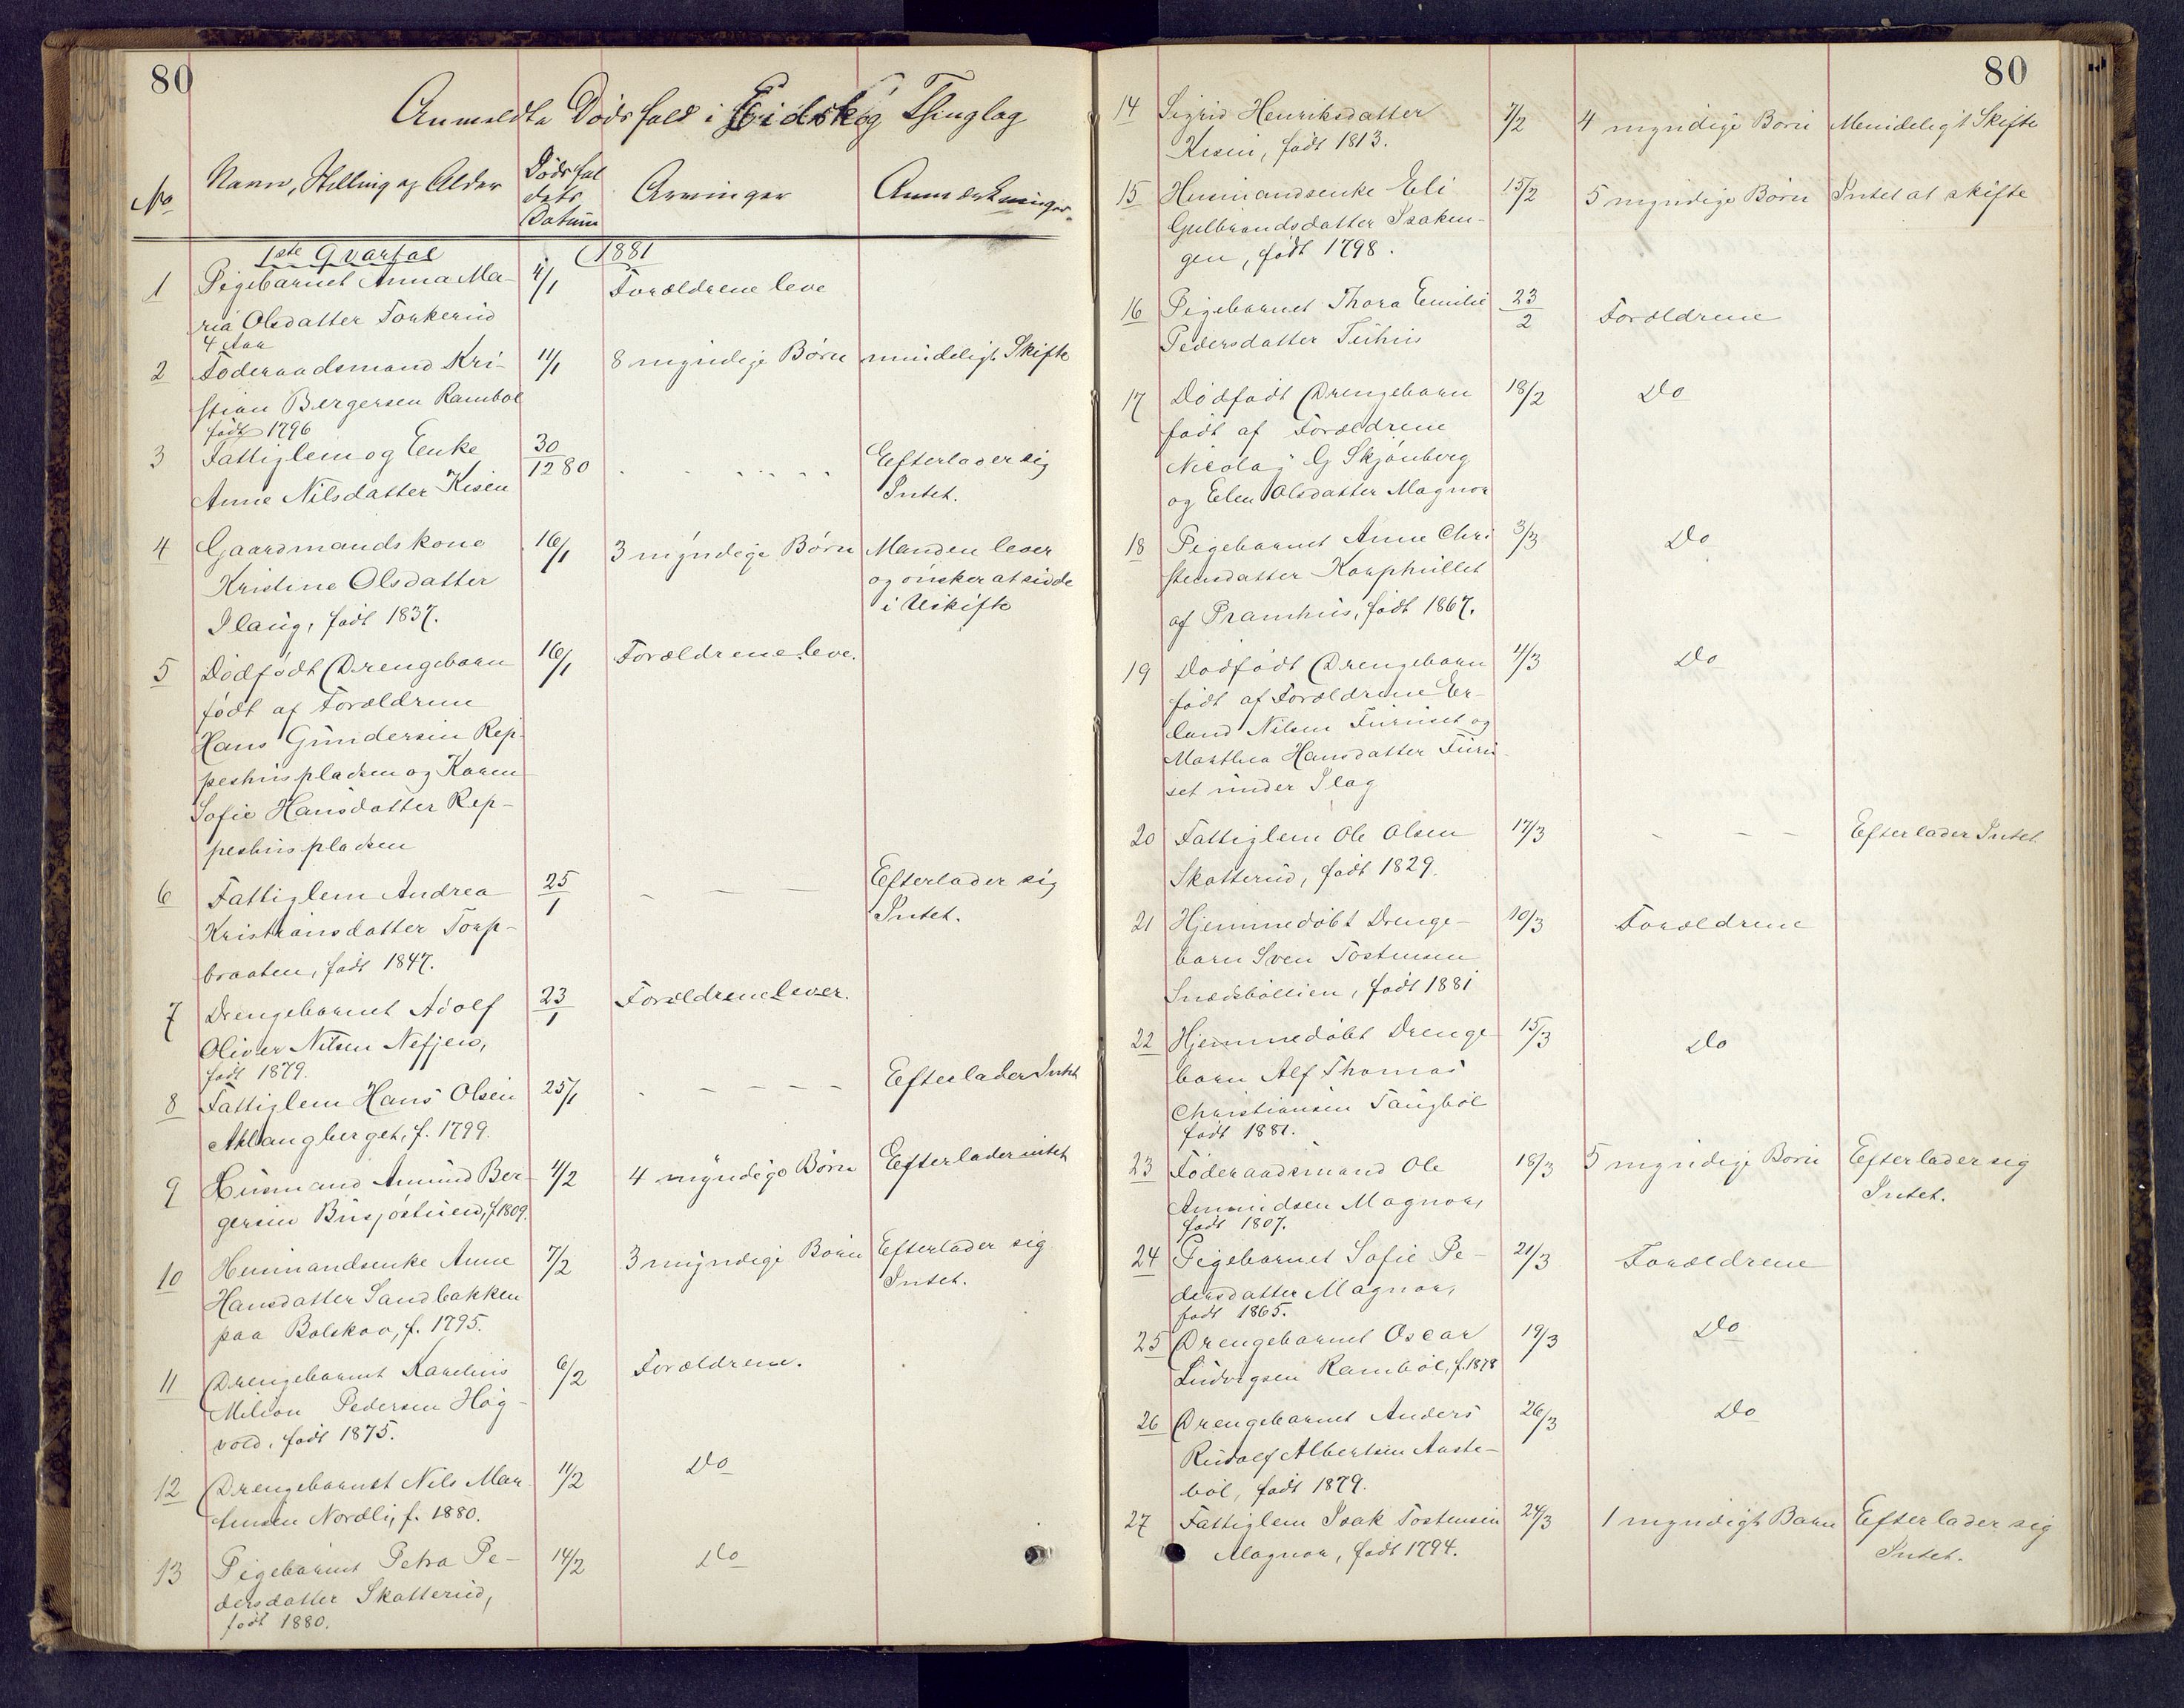 80
Anmeldte Dødsfald i Eidskog Thinglag
No
Navn, Stilling og Alder
Dødsfal
dets
Datum
Arvinger
Anmærkninger
1ste Qvartal
1881
1 Pigebarnet Anna Ma- 4/1 Forældrene leve
ria Olsdatter Torkerud
4 Aar
2 Føderaadsmand Kri- 11/1 8 myndige Børn mindeligt Skifte
stian Bergersen Rambøl
født 1796
3 Fattiglem og Enke 30/12 80 Efterlader sig
Anne Nilsdatter Kisen Intet.
4 Gaardmandskone 16/1 3 myndige Børn Manden lever
Kristine Olsdatter og ønsker at sidde
Ilaug, født 1837. i Uskifte
5 Dødfødt Drengebarn 16/1 Forældrene leve.
født af Forældrene
Hans Gundersen Rep-
peshuspladsen og Karen
Sofie Hansdatter Rep-
peshuspladsen
6 Fattiglem Andrea 25/1 - - - Efterlader sig
Kristiansdatter Torp- Intet.
braaten, født 1847.
7 Drengebarnet Adolf 23/1 Forældrene lever.
Oliver Nilsen Nefjen,
født 1879.
8 Fattiglem Hans Olsen 25/1 - - - - Efterlader Intet
Aklangberget, f. 1799.
9 Husmand Amund Ber- 4/2 4 myndige Børn Efterlader intet
gersen f. 1809.
10 Husmandsenke Anne 7/2 3 myndige Børn Efterlader sig
Hansdatter Sandbakken Intet.
paa Bolskov, f. 1795.
11 Drengebarnet Karelius 6/2 Forældrene.
Milion Pedersen Høg-
vold, født 1875.
12 Drengebarnet Nils Mar- 11/2 Do
tinsen Nordli, f. 1880.
13 Pigebarnet Petra Pe- 14/2 Do
dersdatter Skatterud,
født 1880.
80
14 Sigrid Henriksdatter 7/2 4 myndige Børn Mindeligt Skifte
Kisen, født 1813.
15 Husmandsenke Eli 15/2 5 myndige Børn Intet at skifte
Gulbrandsdatter Isaken-
gen, født 1798.
16 Pigebarnet Thora Emilie 23/2 Forældrene
Pedersdatter
17 Dødfødt Drengebarn 18/2 Do
født af Forældrene
Nicolay G Skjønberg
og Elen Olsdatter Magnor
18 Pigebarnet Anne Chri 3/3 Do
stensdatter Korphullet
af Pramhus, født 1867.
19 Dødfødt Drengebarn 4/3 Do
født af Forældrene Er-
land Nilsen Furuset og
Marthea Hansdatter Furu
set under Ilag
20 Fattiglem Ole Olsen 17/3 - - - Efterlader Intet
Skatterud, født 1829.
21 Hjemmedøbt Drenge- 10/3 Forældrene
barn Sven Tostensen
født 1881
22 Hjemmedøbt Drenge- 15/3 Do
barn Alf Thomas
Christiansen Taugbøl
født 1881.
23 Føderaadsmand Ole 18/3 5 myndige Børn Efterlader sig
Amundsen Magnor, Intet.
født 1807.
24 Pigebarnet Sofie Pe- 21/3 Forældrene
dersdatter Magnor,
født 1865.
25 Drengebarnet Oscar 19/3 Do
Ludvigsen Rambøl, f. 1878
26 Drengebarnet Anders 26/3 Do
Rudolf Albertsen Aaste-
bøl, født 1879.
27 Fattiglem Isak Tostensen 24/3 1 myndigt Barn Efterlader sig
Magnor, født 1794. Intet.